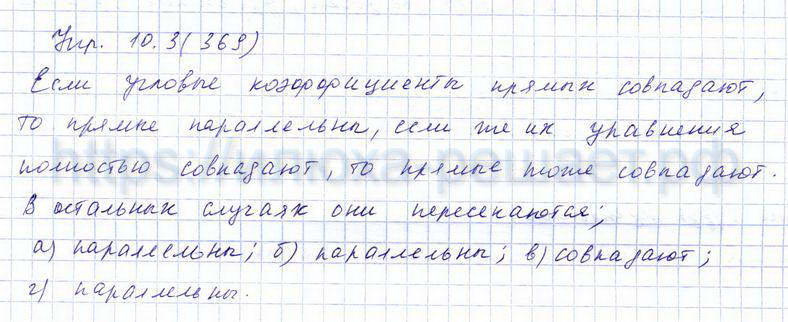 Упр. 10.3(369)
Если угловые коэффициенты прямых совпадают,
то прямые параллельны, если же их уравнения
полностью совпадают, то прямые тоже совпадают.
В остальных случаях они пересекаются;
а) параллельны; б) параллельны; в) совпадают;
г) параллельны.